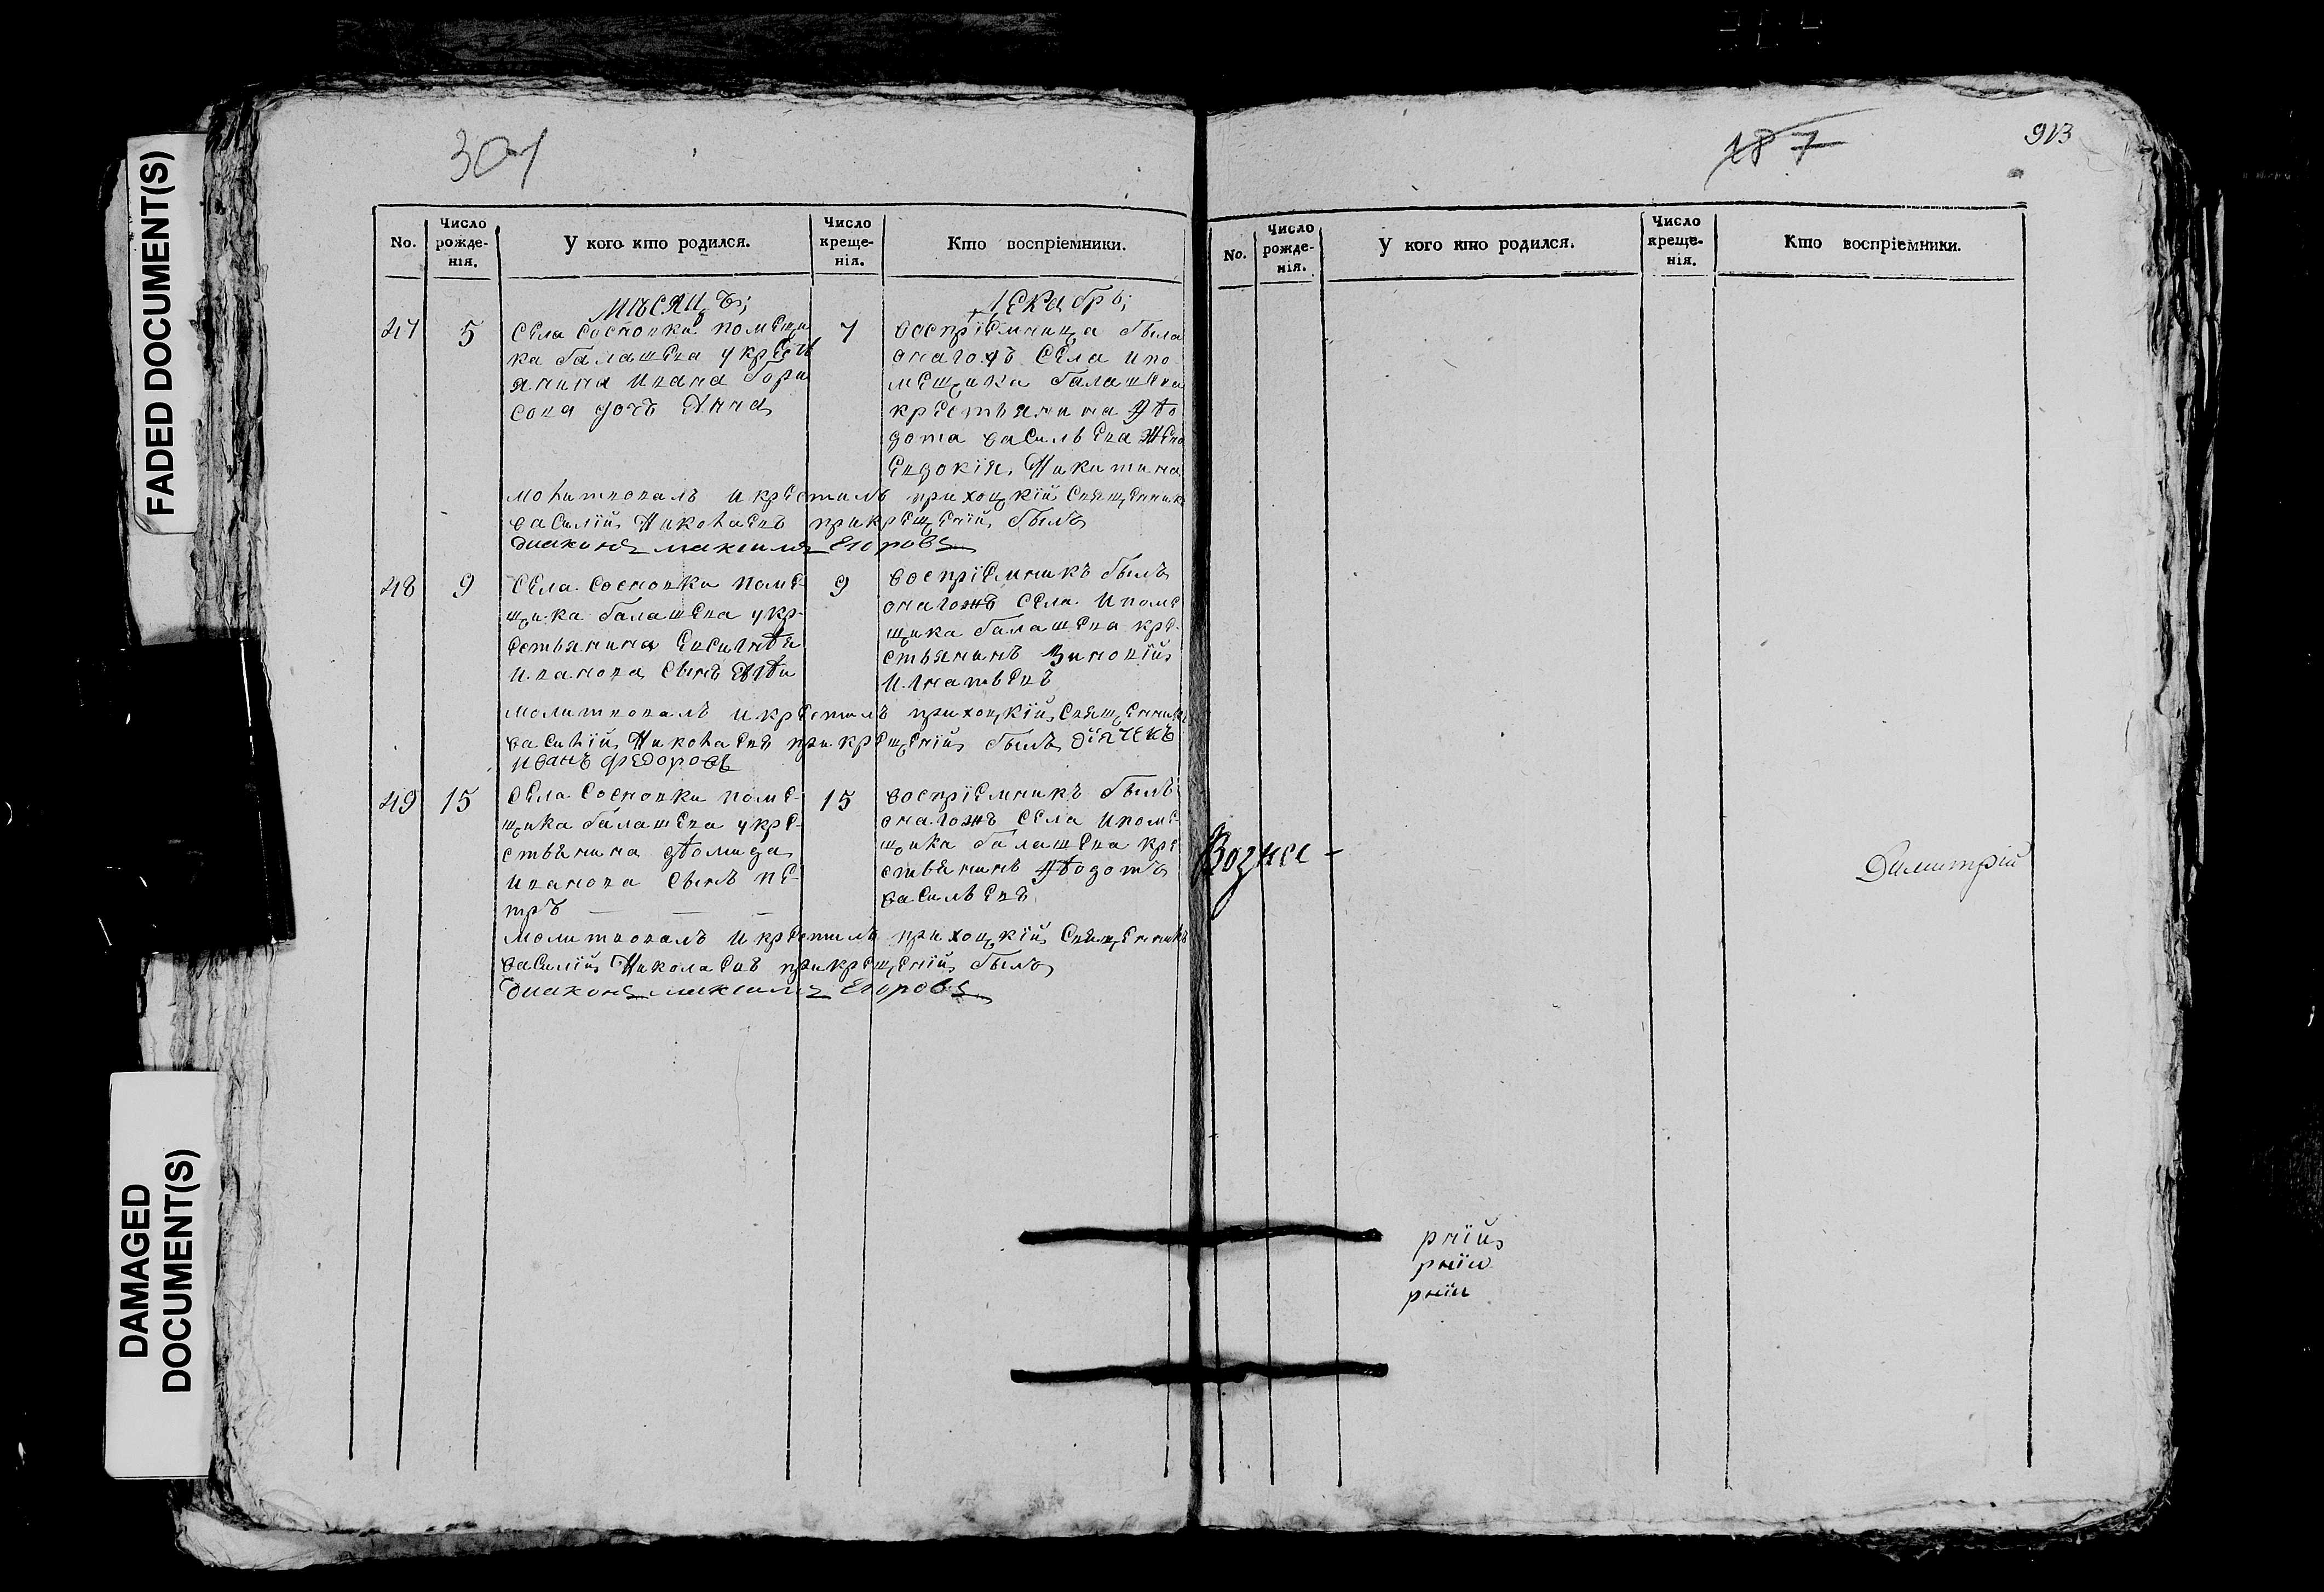 FADED DOCUMENT(S)
DAMAGED
DOCUMENT(S)
301
No.
Число рожде-нія.
У кого кто родился.
Число креще-нія.
Кто воспріемники.
мѣсяцъ; декабрь;
47
5
Села Сосновки помѣщи
ка балашева у крестѣ
янина ивана бори
сова дочь Анна
7
воспріемница была
онагожъ Села ипо
мещика балашева
крестьянина Фѣо
дота васильева жена
Евдокія Никитина
молитвовалъ и крестилъ приходкій Священникъ
василій Николаевъ прикрещеніи былъ
диаконъ максимъ Егоровъ
48
9
Села Сосновки поме-
щика балашева укр-
естьянина Евсигнѣя
иванова Сынъ
9
воспріемникъ былъ
онагожъ Села ипоме
щика балашева кре-
стьянинъ Зиновій
игнатьевъ
молитвовалъ и крестилъ приходкій Священникъ
василій Николаевъ прикрещеніи былъ дiячекъ
иванъ федоровъ
49
15
Села Сосновки поме-
щика балашева укре-
стьянина дѣомида
иванова Сынъ пе-
тръ
15
воспріемникъ былъ
онагожъ Села ипоме-
щика балашева кре
стьянинъ Фѣодотъ
васильевъ
молитвовалъ и крестилъ приходкій Священникъ
василій Николаевъ прикрещеніи былъ
диаконъ максимъ Егоровъ
187
913
No.
Число рожде-нія.
У кого кто родился.
Число креще-нія.
Кто воспріемники.
Вознесе-
Димитрій
рній
рніи
рніи